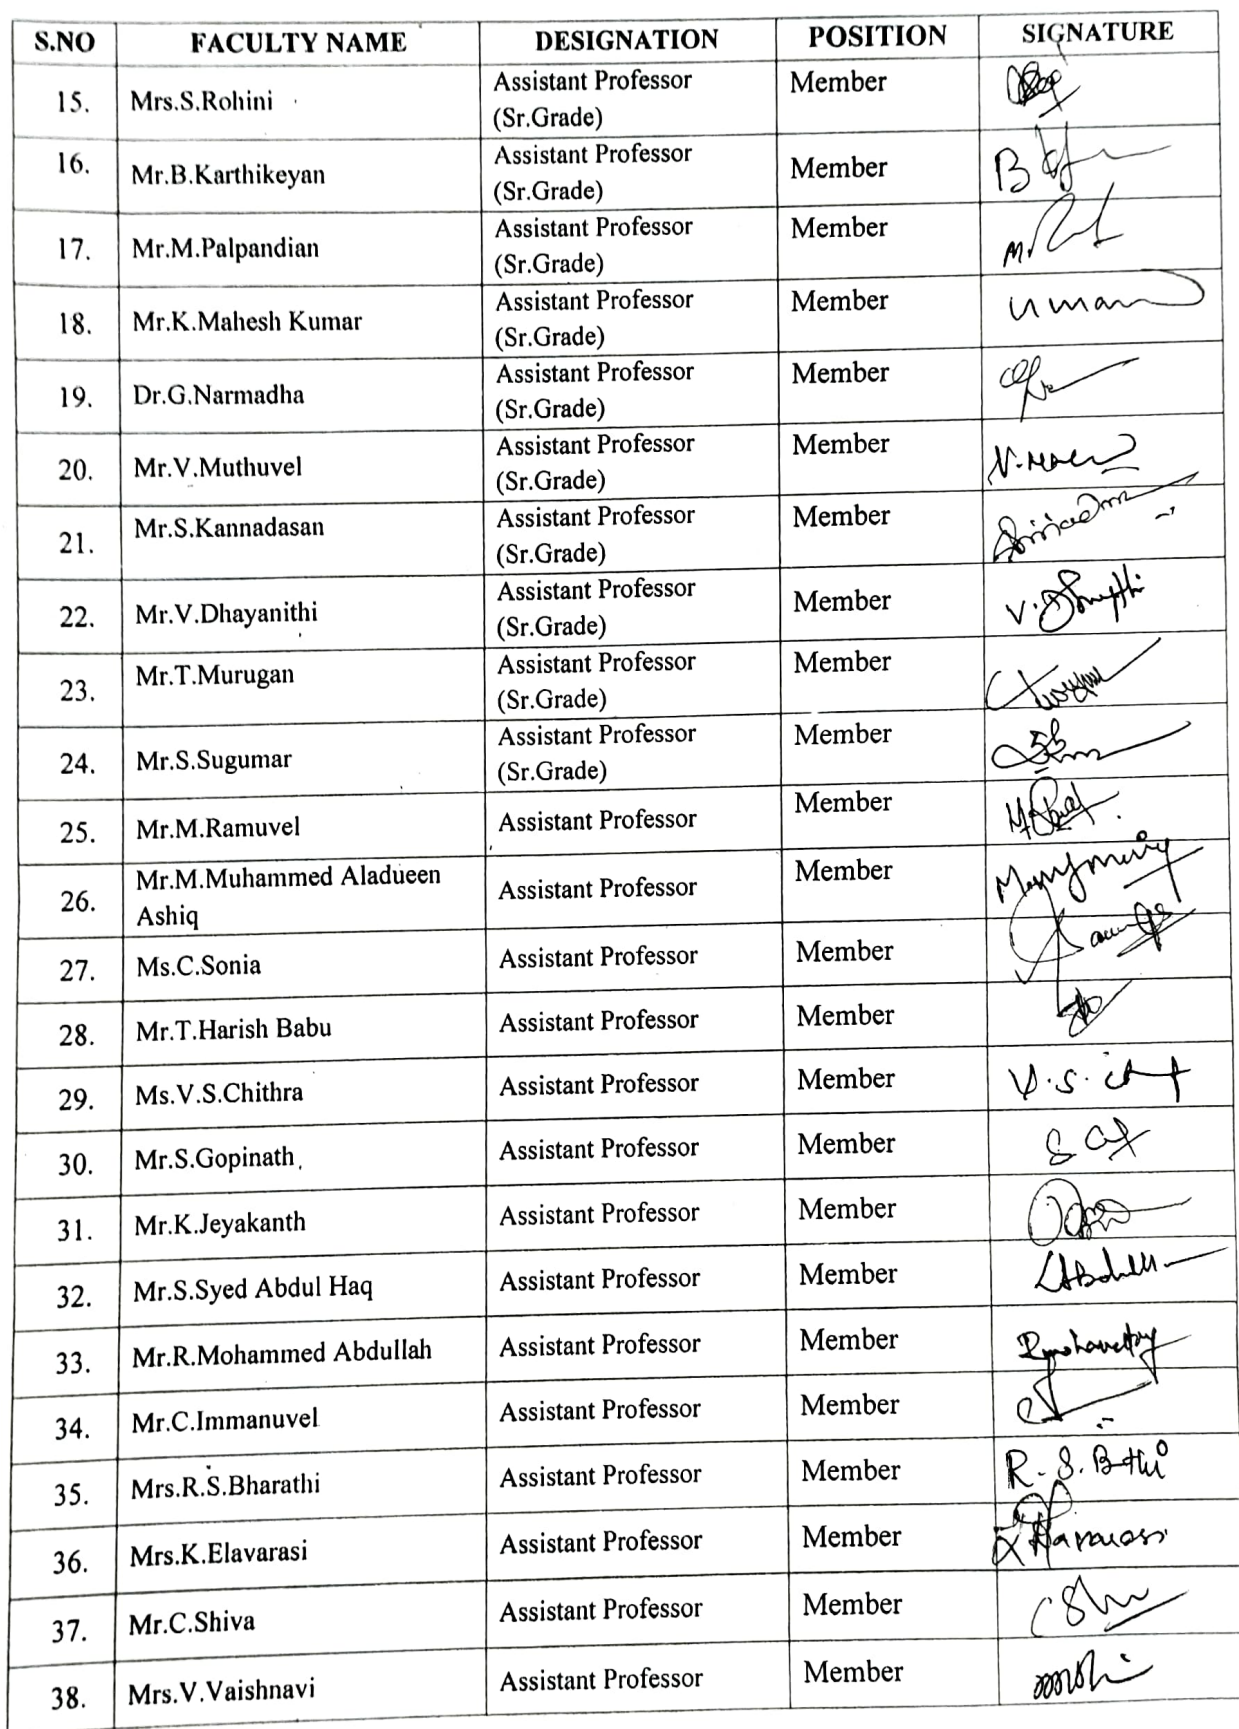 S.NO FACULTY NAME DESIGNATION POSITION SIGNATURE
15. Mrs.S.Rohini Assistant Professor Member
(Sr.Grade)
16. Mr.B.Karthikeyan Assistant Professor Member
(Sr.Grade)
17. Mr.M.Palpandian Assistant Professor Member
(Sr.Grade)
18. Mr.K.Mahesh Kumar Assistant Professor Member
(Sr.Grade)
19. Dr.G.Narmadha Assistant Professor Member
(Sr.Grade)
20. Mr.V.Muthuvel Assistant Professor Member
(Sr.Grade)
21. Mr.S.Kannadasan Assistant Professor Member
(Sr.Grade)
22. Mr.V.Dhayanithi Assistant Professor Member
(Sr.Grade)
23. Mr.T.Murugan Assistant Professor Member
(Sr.Grade)
24. Mr.S.Sugumar Assistant Professor Member
(Sr.Grade)
25. Mr.M.Ramuvel Assistant Professor Member
26. Mr.M.Muhammed Aladueen Assistant Professor Member
Ashiq
27. Ms.C.Sonia Assistant Professor Member
28. Mr.T.Harish Babu Assistant Professor Member
29. Ms.V.S.Chithra Assistant Professor Member
30. Mr.S.Gopinath Assistant Professor Member
31. Mr.K.Jeyakanth Assistant Professor Member
32. Mr.S.Syed Abdul Haq Assistant Professor Member
33. Mr.R.Mohammed Abdullah Assistant Professor Member
34. Mr.C.Immanuvel Assistant Professor Member
35. Mrs.R.S.Bharathi Assistant Professor Member
36. Mrs.K.Elavarasi Assistant Professor Member
37. Mr.C.Shiva Assistant Professor Member
38. Mrs.V.Vaishnavi Assistant Professor Member